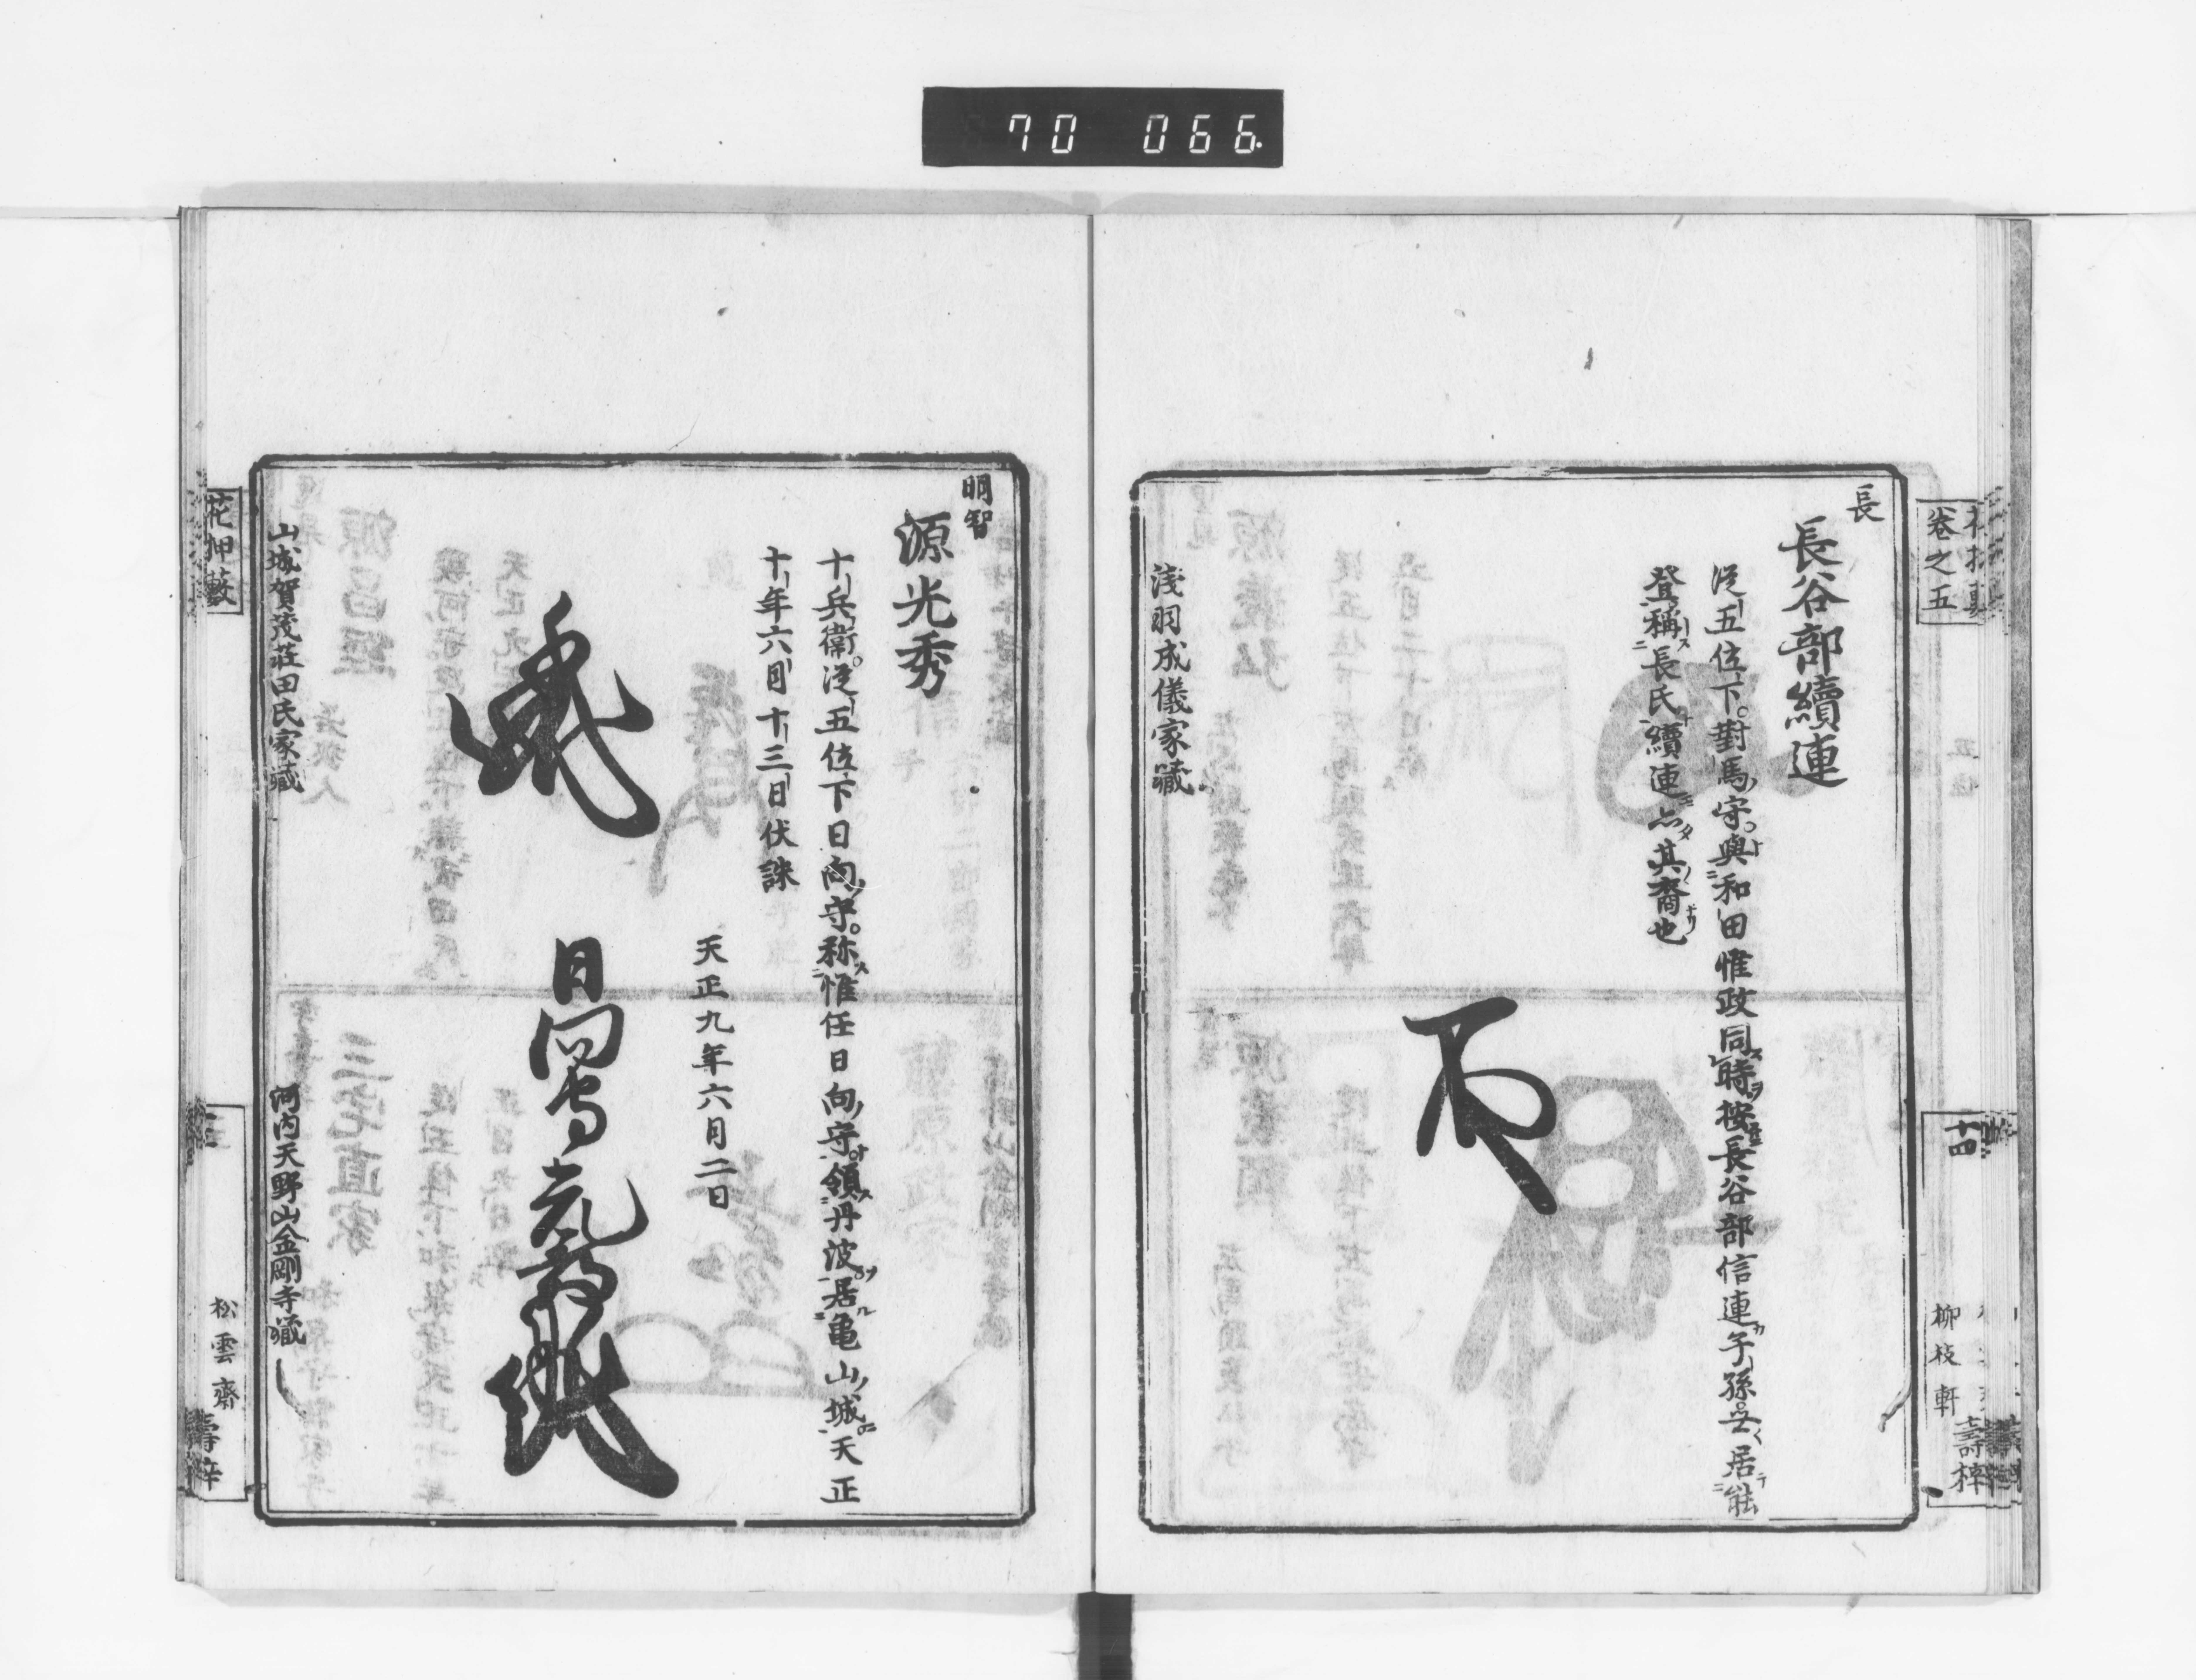 70 066
卷之五
十四
柳枝軒
壽梓
長
長谷部續連
從五位下對馬守與和田惟政同時按長谷部信連子孫世居能
登稱長氏續連亦其裔也
淺羽成儀家藏
明智
源光秀
十兵衞從五位下日向守称惟任日向守領丹波居亀山城天正
十年六月十三日伏誅
天正九年六月二日
日向守
光秀
山城賀茂莊田氏家藏
河内天野山金剛寺藏
花押藪
松雲齋
壽梓